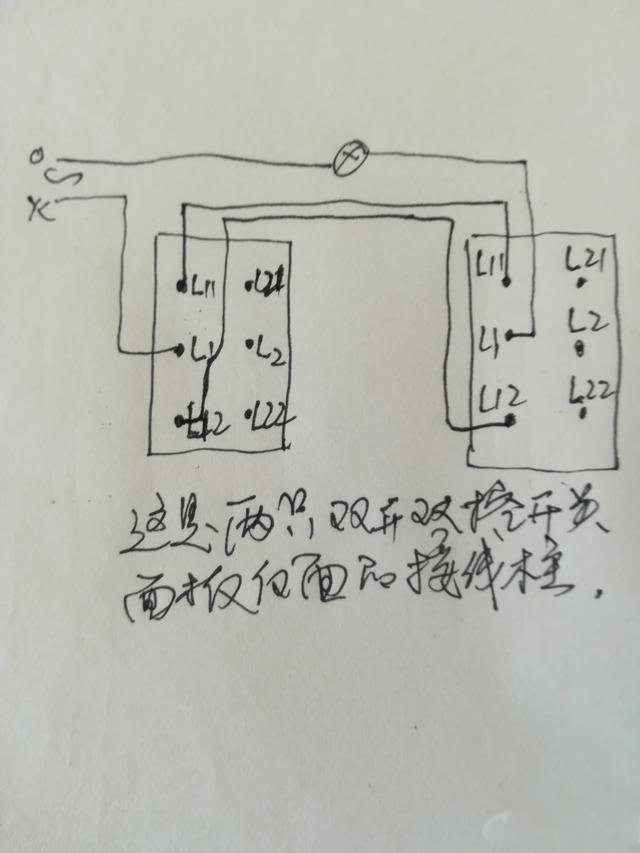 L11 L21 L11 L21
L1 L2 L1 L2
L12 L22 L12 L22
这是两只双开双控开关
面板后面的接线柱.